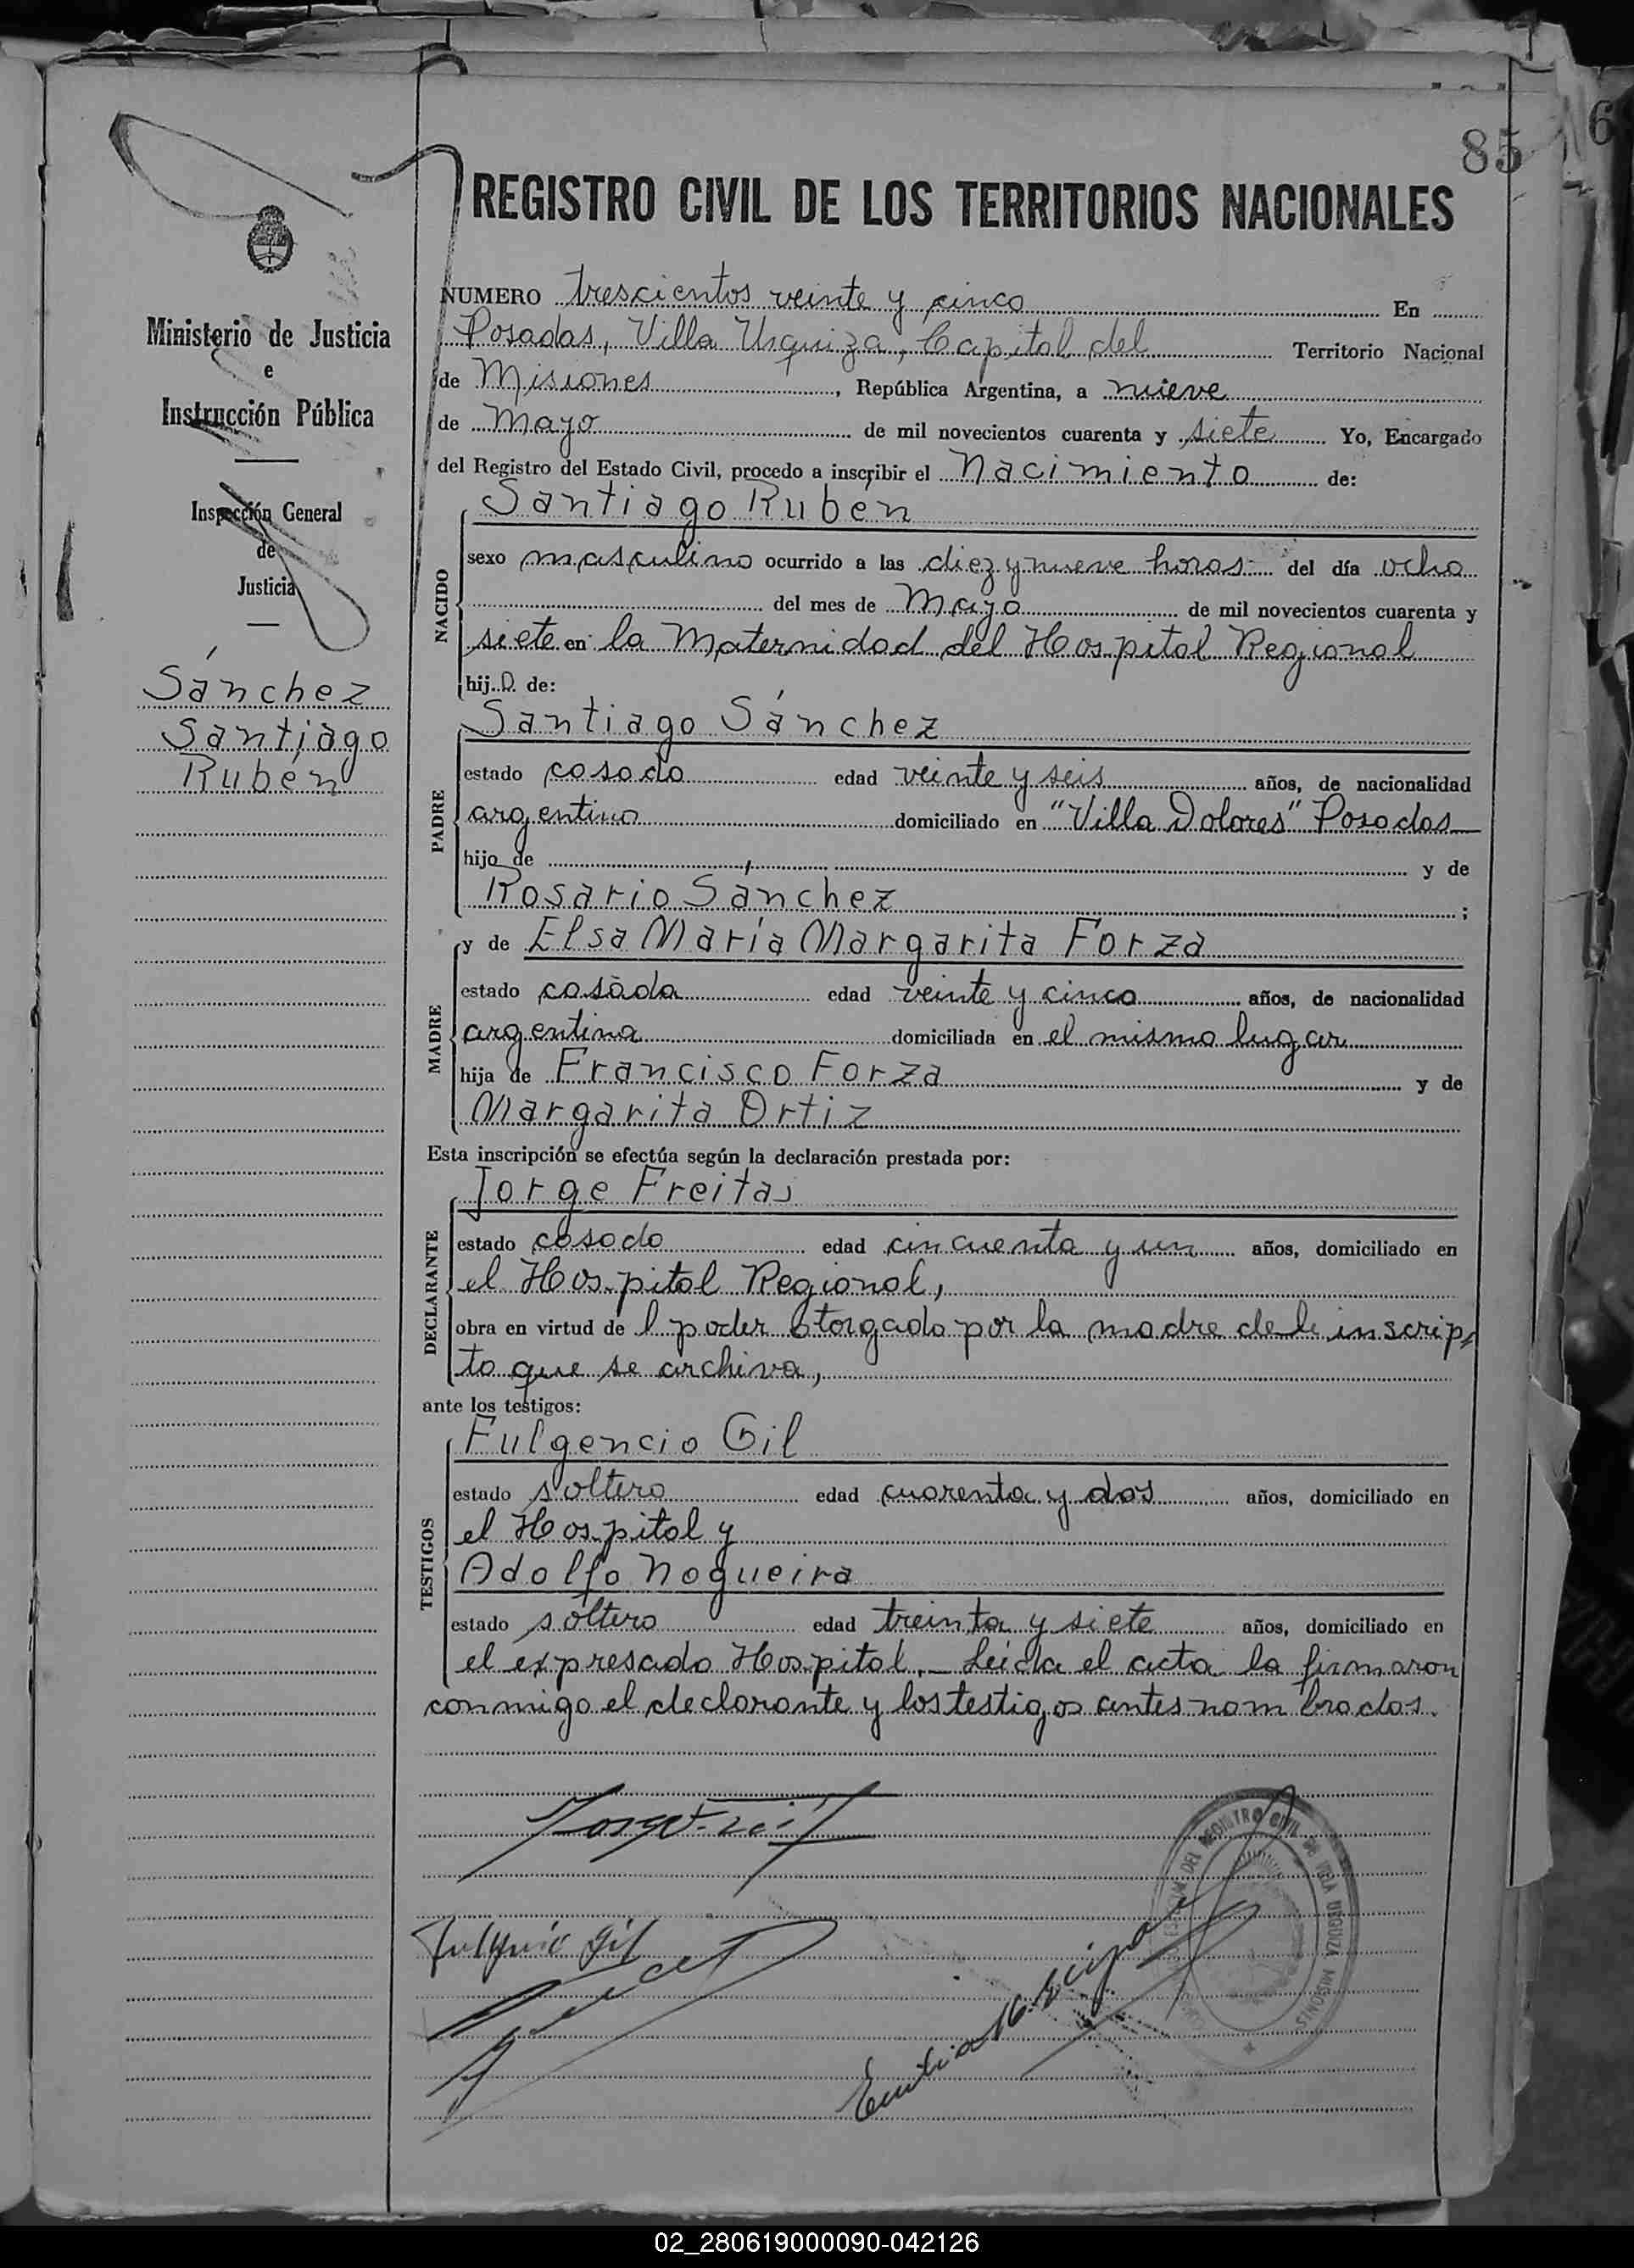 85
6
REGISTRO CIVIL DE LOS TERRITORIOS NACIONALES
Ministerio de Justicia
e
Instrucción Pública
Inspección General
de
Justicia
Sánchez
Santiago
Rubén
NUMERO trescientos veinte y cinco En
Posadas, Villa Urquiza, Capital del Territorio Nacional
de Misiones, República Argentina, a nueve
de Mayo de mil novecientos cuarenta y siete Yo, Encargado
del Registro del Estado Civil, procedo a inscribir el Nacimiento de:
NACIDO
Santiago Rubén
sexo masculino ocurrido a las diez y nueve horas del día ocho
del mes de Mayo de mil novecientos cuarenta y
siete en la Maternidad del Hospital Regional
hijo de:
PADRE
Santiago Sánchez
estado casado edad veinte y seis años, de nacionalidad
argentino domiciliado en "Villa Dolores" Posadas
hijo de y de
Rosario Sánchez;
MADRE
y de Elsa María Margarita Forza
estado casada edad veinte y cinco años, de nacionalidad
argentina domiciliada en el mismo lugar
hija de Francisco Forza y de
Margarita Ortiz
Esta inscripción se efectúa según la declaración prestada por:
DECLARANTE
Jorge Freitas
estado casado edad cincuenta y un años, domiciliado en
el Hospital Regional,
obra en virtud de l poder otorgado por la madre del inscrip
to que se archiva,
ante los testigos:
TESTIGOS
Fulgencio Gil
estado soltero edad cuarenta y dos años, domiciliado en
el Hospital y
Adolfo Nogueira
estado soltero edad treinta y siete años, domiciliado en
el expresado Hospital. Leída el acta la firmaron
conmigo el declarante y los testigos antes nombrados.
DEL REGISTRO CIVIL DE VILLA URQUIZA MISIONES
02_280619000090-042126